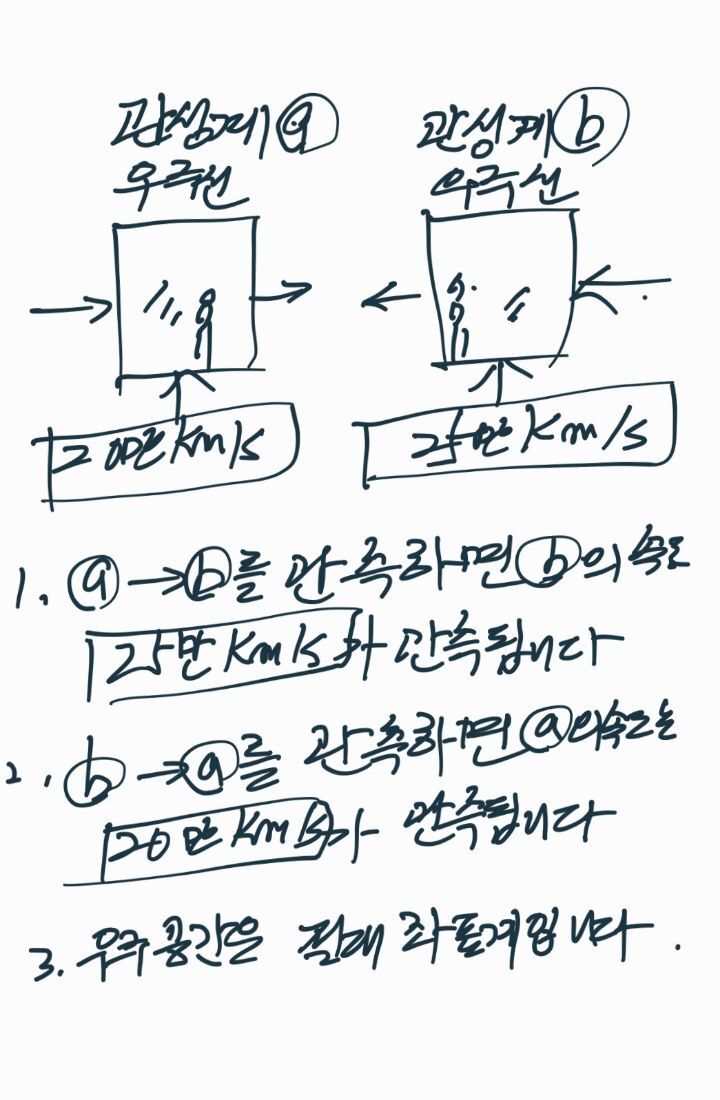 관성계 ⓐ
우주선
관성계 ⓑ
우주선
20만 Km/s
25만 Km/s
1. ⓐ→ⓑ를 관측하면 ⓑ의 속도
25만 Km/s가 관측됩니다
2. ⓑ→ⓐ를 관측하면 ⓐ의 속도는
20만 Km/s가 관측됩니다
3. 우주공간은 절대 좌표계입니다.